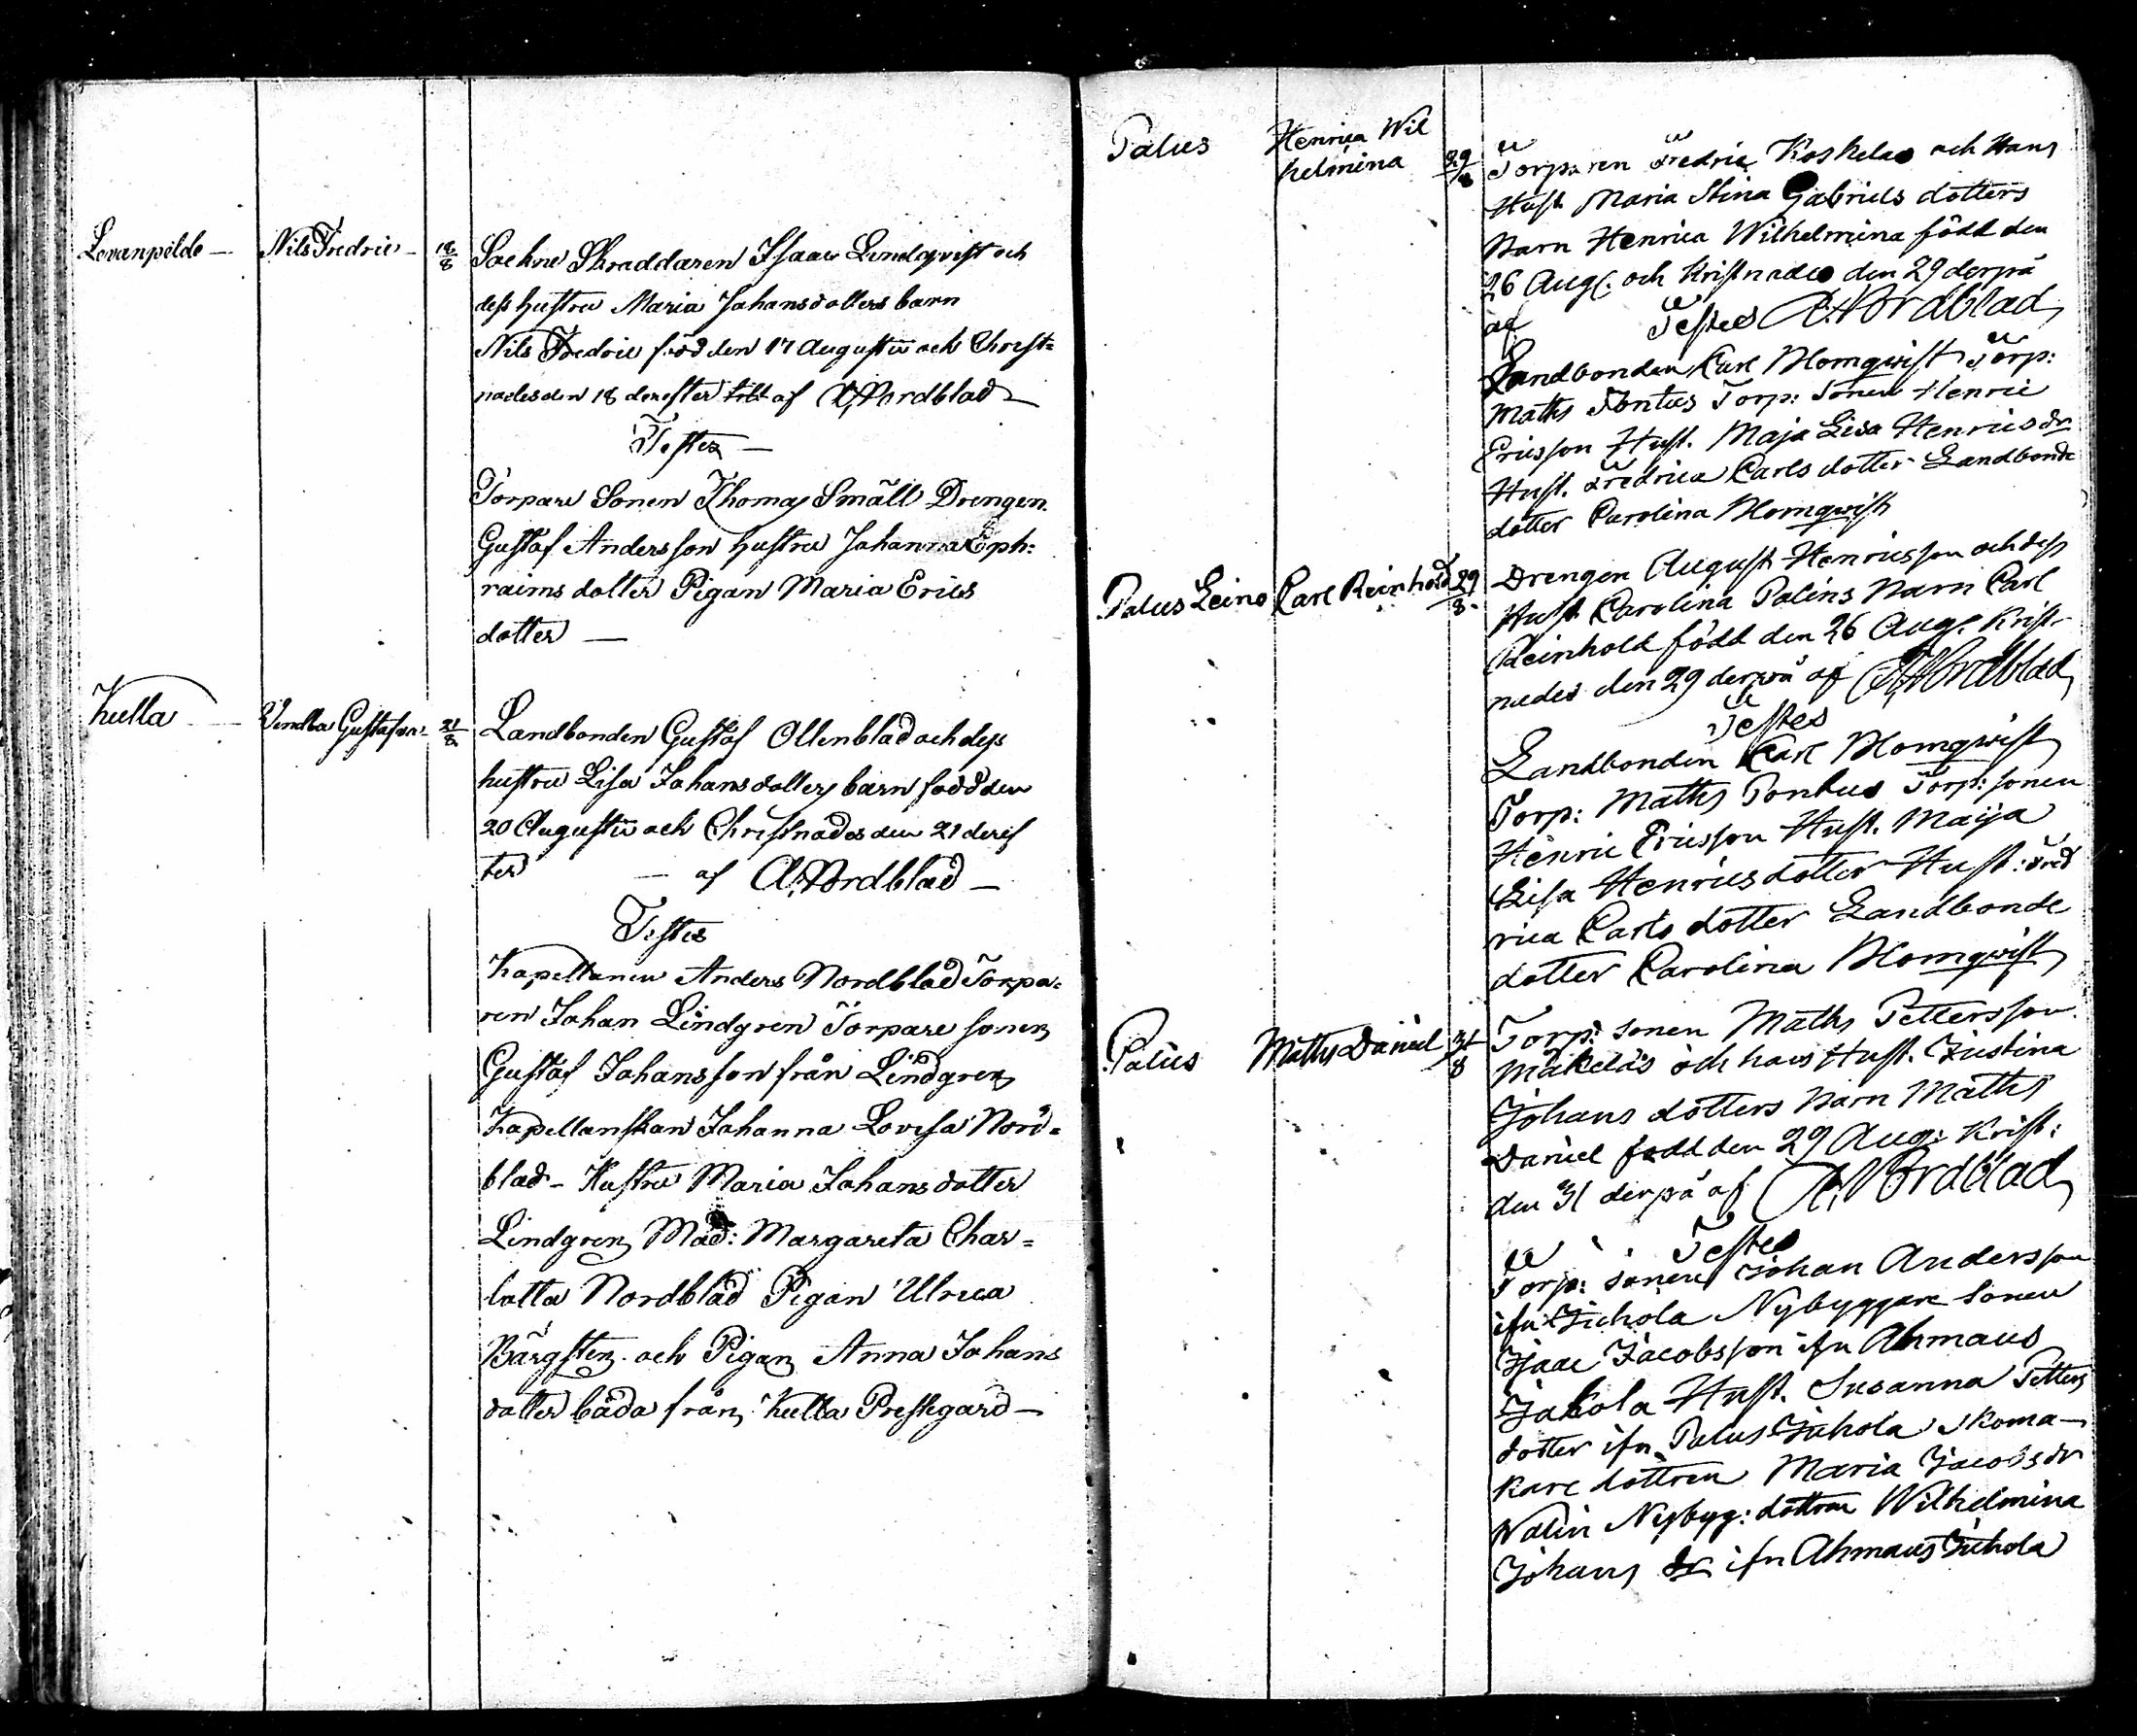 Levanpeldo — Nils Fredric — 18/8 Sockne Skraddaren Isaac Lindqvist och
dess hustru Maria Johansdotters barn
Nils Fredric född den 17 Augustii och Christ=
nades den 18 derefter af A. Nordblad —
Testes —
Torpare Sonen Thomas Smäll Drengen
Gustaf Andersson hustru Johanna Eph:
raims dotter Pigan Maria Erics
dotter —
Kulla — Vendla Gustafva — 21/8 Landbonden Gustaf Ollenblad och dess
hustru Lisa Johansdotters barn född den
20 Augustii och Christnades den 21 deref
ter — af A. Nordblad —
Testes
Kapellanen Anders Nordblad Torpa=
ren Johan Lindgren Torpare sonen
Gustaf Johansson från Lindgren
Kapellanskan Johanna Lovisa Nord=
blad - Hustru Maria Johansdotter
Lindgren Mad: Margareta Char=
lotta Nordblad Pigan Ulrica
Bärgsten och Pigan Anna Johans
dotter båda från Kulla Prestegård —
Palus Henrica Wil
helmina 29/8 Torparen Fredric Koskelas och Hans
Hust Maria Stina Gabriels dotters
Barn Henrica Wilhelmina född den
26 Aug: och Kristnades den 29 derpå
af Testes A. Nordblad
Landbonden Carl Blomqwist Torp:
Maths Pontus Torp: Sonen Henric
Ericsson Hust. Maja Lisa Henricsdr
Hust. Fredrica Carls dotter Landbonde
dotter Carolina Blomqwist
Palus Leino Carl Reinhold 29/8. Drengen August Henricsson och dess
Hust Carolina Palins Barn Carl
Reinhold född den 26 Aug. Krist-
nades den 29 derpå af A. Nordblad
Testes
Landbonden Carl Blomqwist
Torp: Maths Pontus Torp: sonen
Henric Ericsson Hust. Maija
Lisa Henricsdotter Hust: Fred
rica Carls dotter Landbonde
dotter Carolina Blomqwist
Palus Maths Daniel 31/8 Torp: sonen Maths Pettersson
Mäkeläs och hans Hust. Justina
Johans dotters Barn Maths
Daniel född den 29 Aug: Krist:
den 31 derpå af A. Nordblad
Testes
Torp: sonen Johan Andersson
ifn Juhola Nybyggare Sonen
Isaac Jacobsson ifn Ahmaus
Jakola Hust. Susanna Petters
dotter ifn Palus Juhola Skoma-
kare dottren Maria Jacobsdr
Walin Nybyg: dottren Wilhelmina
Johans dr ifn Ahmaus Juhola